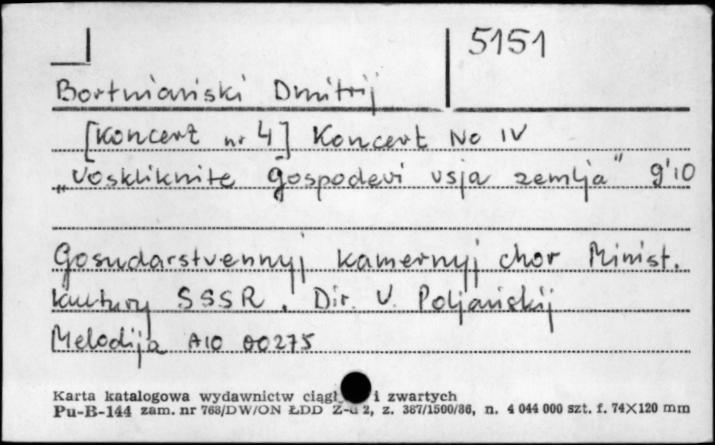 5151
Bortniański Dmitrij
[Koncert nr 4] Koncert No IV
„Voskliknite Gospodevi vsja zemlja" 9'10
Gosudarstvennyj kamernyj chor Minist.
kultury SSSR. Dir. V. Poljańskij
Melodija A10 00275
Karta katalogowa wydawnictw ciągł i zwartych
Pu-B-144 zam. nr 768/DW/ON ŁDD Z-d 2, z. 387/1500/86, n. 4 044 000 szt. f. 74×120 mm